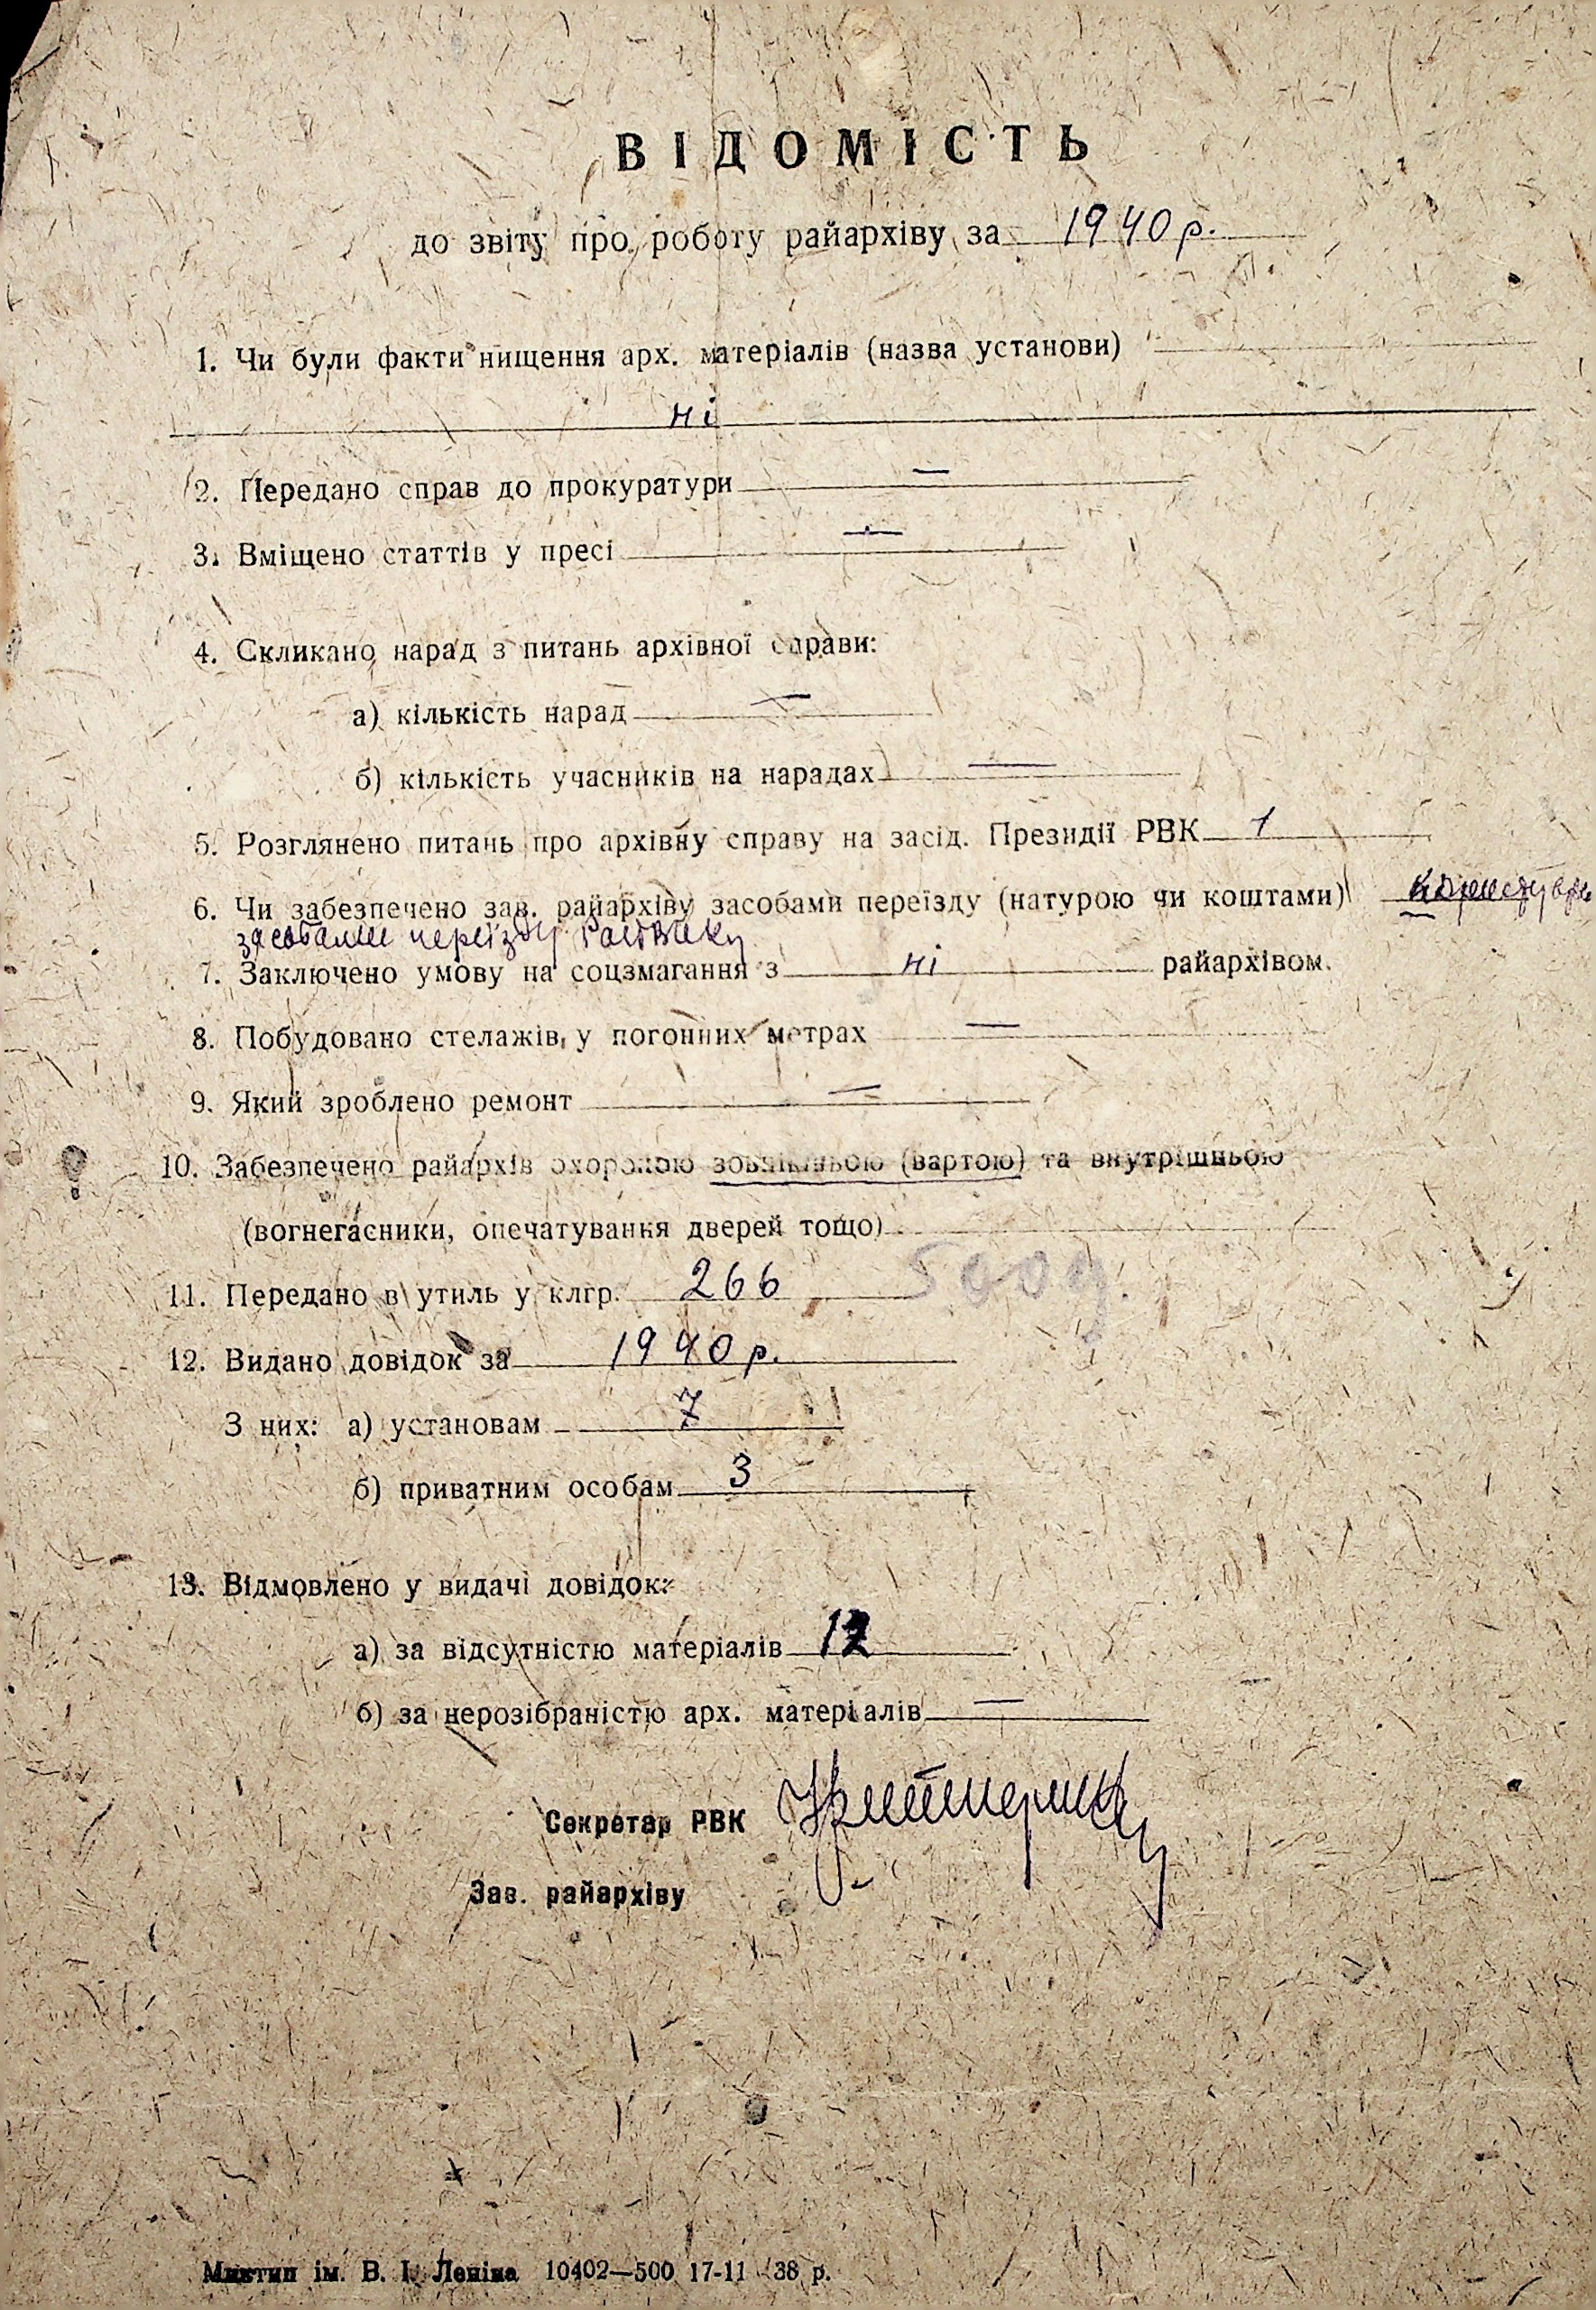 ВІДОМІСТЬ
до звіту про роботу райархіву за 1940 р.
1. Чи були факти нищення арх. матеріалів (назва установи)
ні
2. Передано справ до прокуратури —
3. Вміщено статтів у пресі —
4. Скликано нарад з питань архівної справи:
а) кількість нарад —
б) кількість учасників на нарадах —
5. Розглянено питань про архівну справу на засід. Президії РВК 1
6. Чи забезпечено зав. райархіву засобами переїзду (натурою чи коштами)
засобами переїзду
7. Заключено умову на соцзмагання з ні райархівом.
8. Побудовано стелажів, у погонних метрах —
9. Який зроблено ремонт —
10. Забезпечено райархів охороною зовнішньою (вартою) та внутрішньою
(вогнегасники, опечатування дверей тощо)
11. Передано в утиль у клгр. 266
12. Видано довідок за 1940 р.
З них: а) установам 7
б) приватним особам 3
13. Відмовлено у видачі довідок:
а) за відсутністю матеріалів 12
б) за нерозібраністю арх. матеріалів —
Секретар РВК
Зав. райархіву
Миктип ім. В. І. Леніна 10402—500 17-11 38 р.